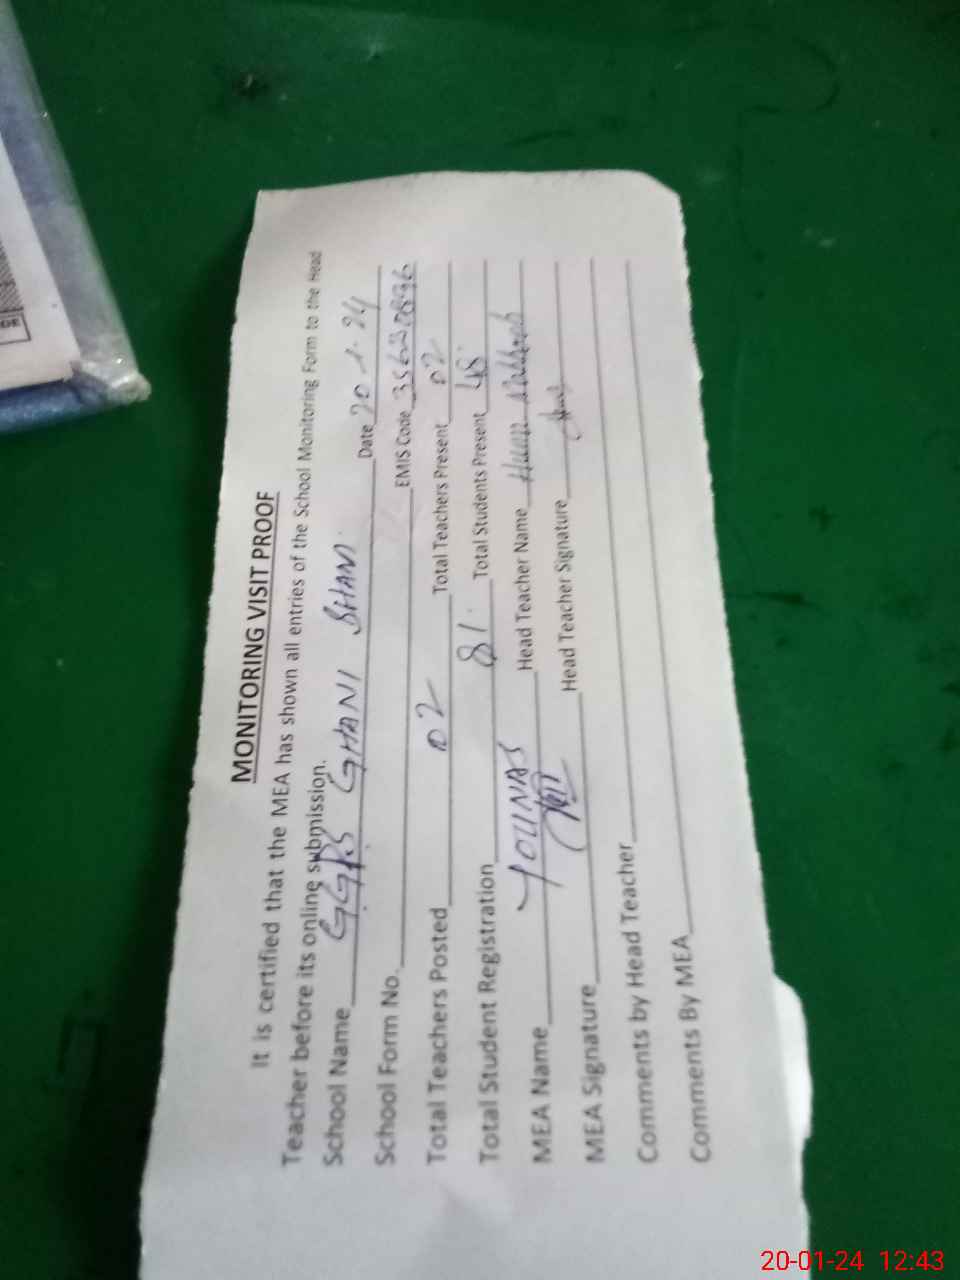 MONITORING VISIT PROOF
It is certified that the MEA has shown all entries of the School Monitoring Form to the Head
Teacher before its online submission.
School Name GGPS GHANI BHANI Date 20.1.24
School Form No. EMIS Code
Total Teachers Posted 02 Total Teachers Present 02
Total Student Registration 81 Total Students Present 48
MEA Name YOUNAS Head Teacher Name
MEA Signature Head Teacher Signature
Comments by Head Teacher
Comments By MEA
20-01-24 12:43